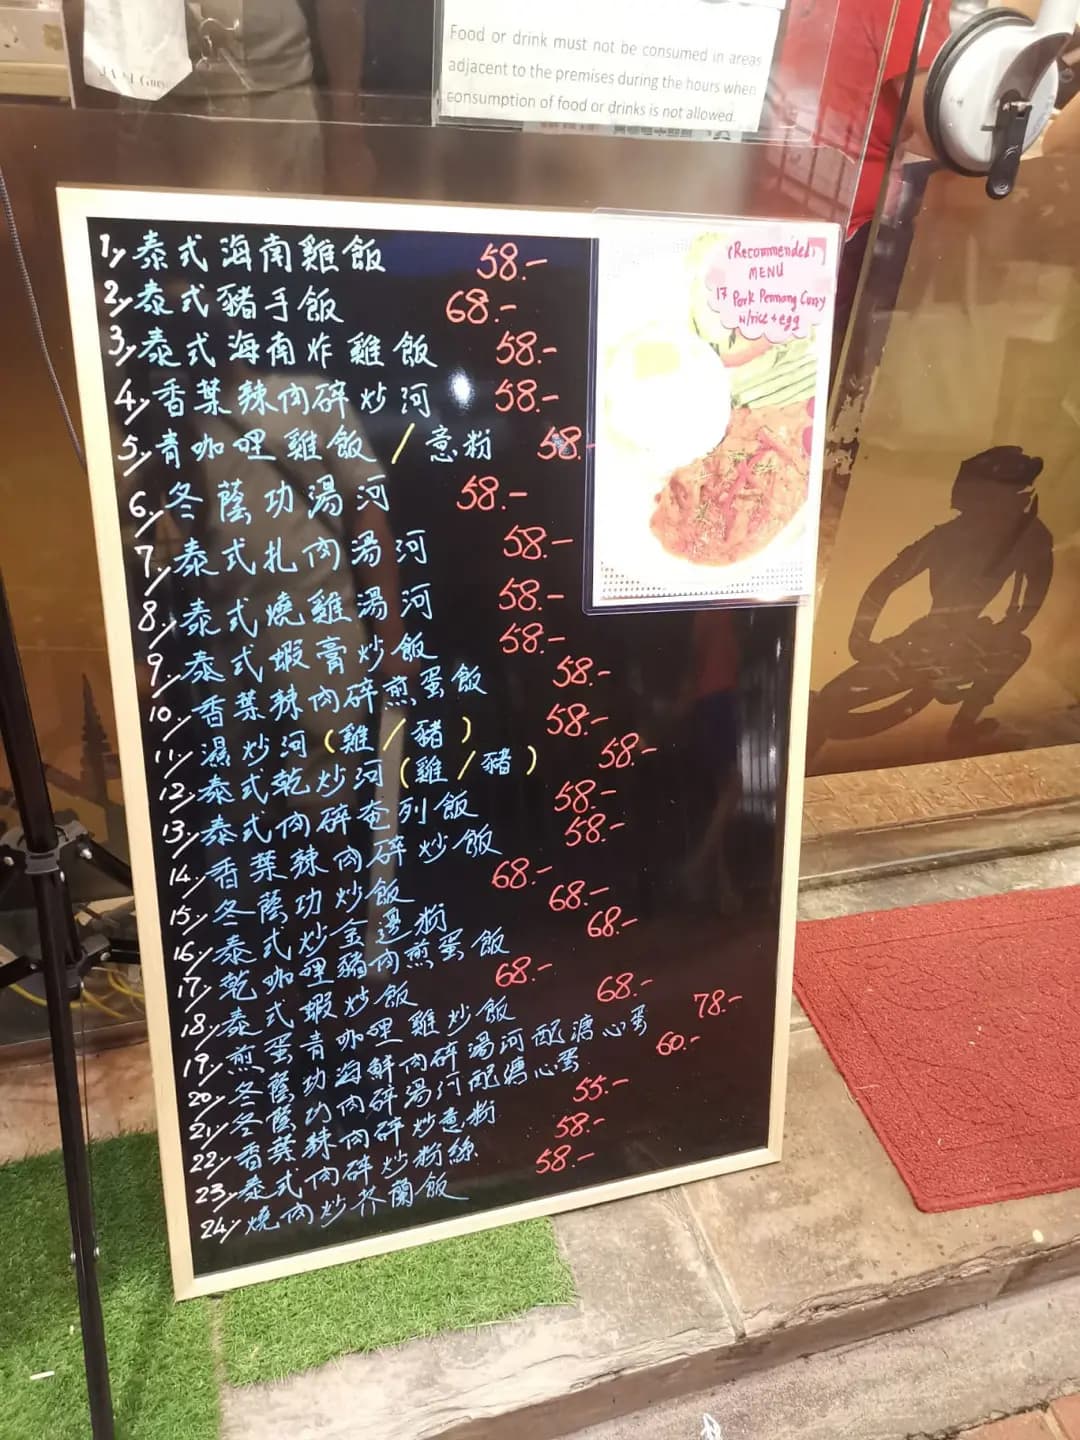 Food or drink must not be consumed in areas
adjacent to the premises during the hours when
consumption of food or drinks is not allowed.
(Recommended)
MENU
17 Pork Pennang Curry
w/rice + egg
1/ 泰式海南雞飯 58.-
2/ 泰式豬手飯 68.-
3/ 泰式海南炸雞飯 58.-
4/ 香葉辣肉碎炒河 58.-
5/ 青咖哩雞飯 / 意粉 58.-
6/ 冬蔭功湯河 58.-
7/ 泰式扎肉湯河 58.-
8/ 泰式燒雞湯河 58.-
9/ 泰式蝦膏炒飯 58.-
10/ 香葉辣肉碎煎蛋飯 58.-
11/ 濕炒河 (雞 / 豬) 58.-
12/ 泰式乾炒河 (雞 / 豬) 58.-
13/ 泰式肉碎奄列飯 58.-
14/ 香葉辣肉碎炒飯 58.-
15/ 冬蔭功炒飯 68.-
16/ 泰式炒金邊粉 68.-
17/ 乾咖哩豬肉煎蛋飯 68.-
18/ 泰式蝦炒飯 68.-
19/ 煎蛋青咖哩雞炒飯 68.-
20/ 冬蔭功海鮮肉碎湯河配溏心蛋 78.-
21/ 冬蔭功肉碎湯河配溏心蛋 60.-
22/ 香葉辣肉碎炒意粉 55.-
23/ 泰式肉碎炒粉絲 58.-
24/ 燒肉炒芥蘭飯 58.-